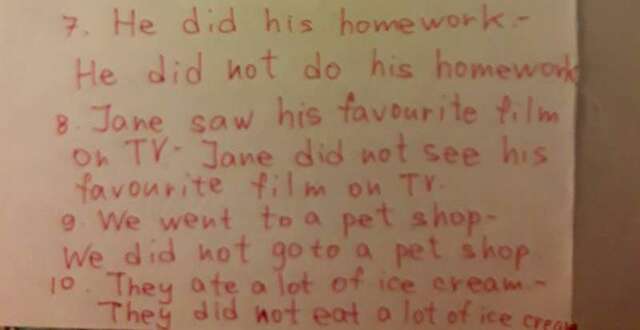 7. He did his homework.-
He did not do his homework
8. Jane saw his favourite film
on TV- Jane did not see his
favourite film on TV.
9. We went to a pet shop-
We did not go to a pet shop
10. They ate a lot of ice cream.-
They did not eat a lot of ice cream